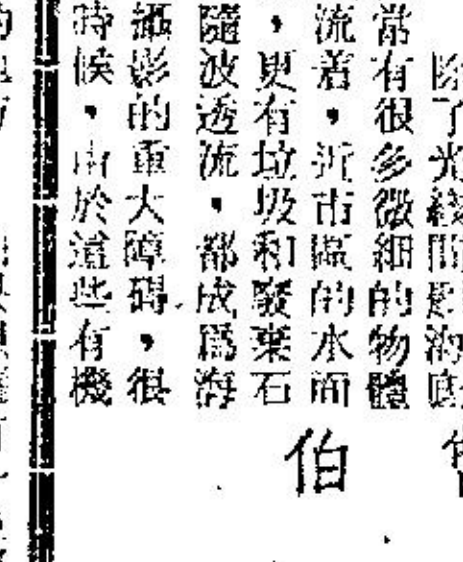 除了光綫問題海底
常有很多微細的物體
流着，近市區的水面
，更有垃圾和廢棄石
隨波透流，都成爲海
攝影的重大障碍，很
時候，由於這些有機
伯